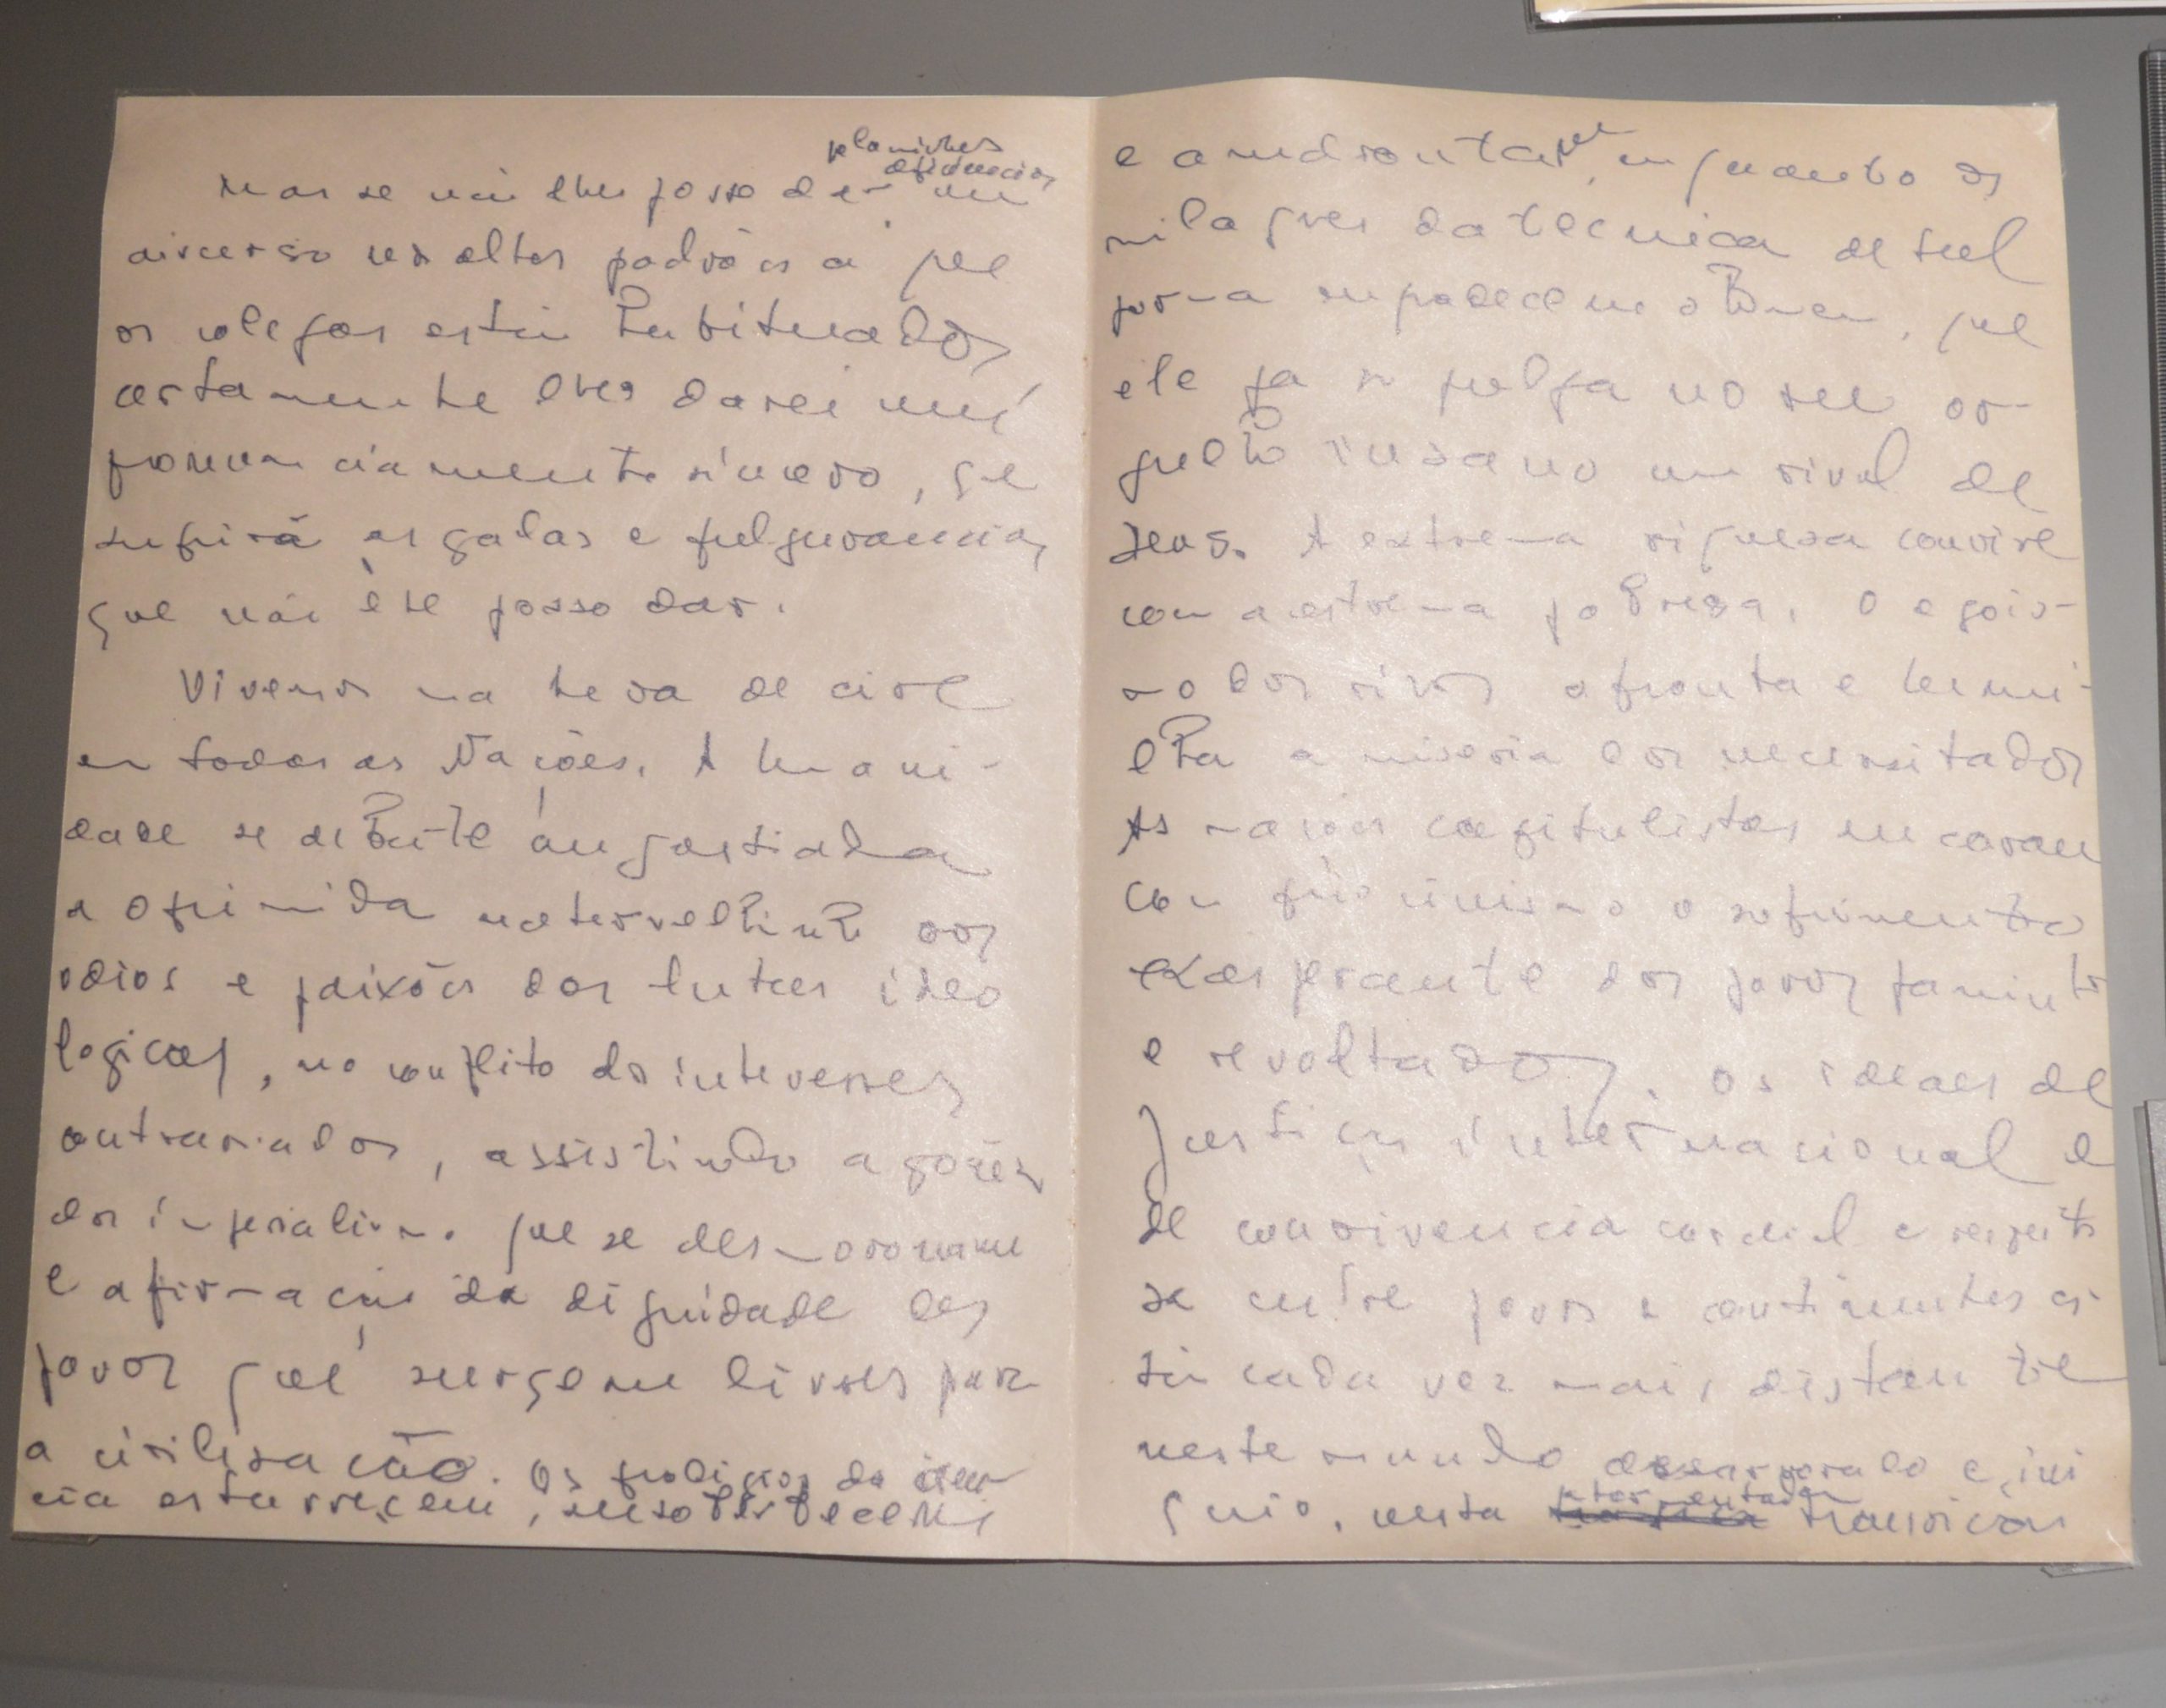 Mas se não lhes posso dar um
discurso nos altos padrões a que
os colegas estão habituados
certamente lhes darei um
pronunciamento sincero, que
suprirá as galas e fulgurancias
que não lhe posso dar.
Vivemos na hora de crise
em todas as Nações. A humani-
dade se debate angustiada
e oprimida no torvelinho dos
odios e paixões das lutas ideo
logicas, no conflito dos interesses
contrariados, assistindo a
do imperialismo que se desmorona
e afirmação da dignidade dos
povos que surgem livres para
a civilisação. Os prodigios da cien
cia estarrecem, ensoberbecem
e amedrontam, enquanto os
milagres da tecnica de tal
forma o homem, que
ele já se julga no seu or-
gulho insano um rival de
Deus. A extrema riquesa convive
com a extrema pobresa. O egois-
mo dos ricos afronta e humi-
lha a miseria dos necessitados
As nações capitalistas encaram
com frio cinismo o sofrimento
exasperante dos povos famintos
e revoltados. Os ideaes de
Justiça internacional e
de convivencia cordial e respeito
sa entre povos e continentes es-
tão cada vez mais distante
neste mundo e ini
quo, nesta atormentada transição